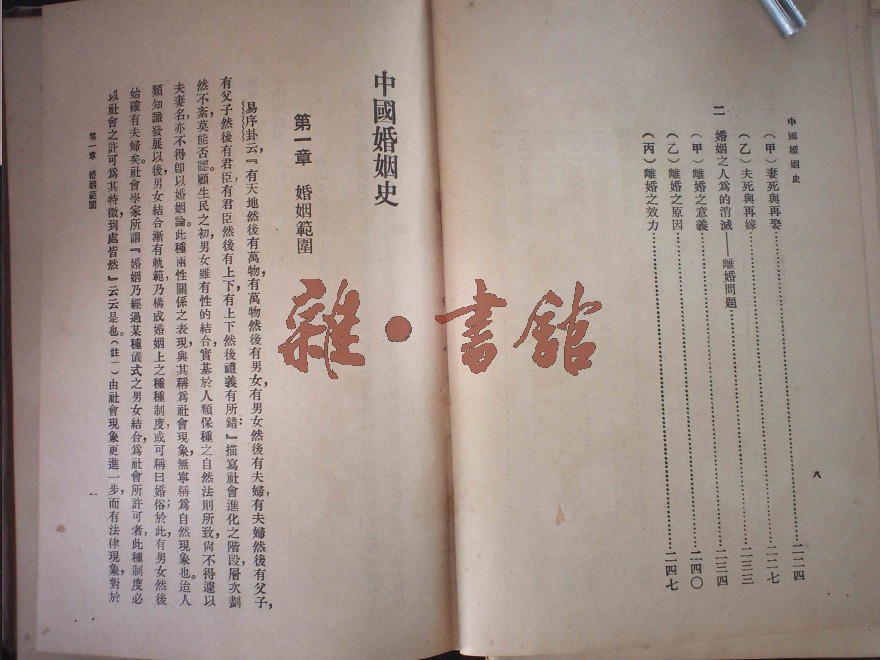 中國婚姻史
(甲)妻死與再娶……二二七
(乙)夫死與再嫁……二三三
二 婚姻之人爲的消滅——離婚問題……二三四
(甲)離婚之意義……二四〇
(乙)離婚之原因
(丙)離婚之效力……二四七
八
中國婚姻史
第一章 婚姻範圍
易序卦云,『有天地然後有萬物,有萬物然後有男女,有男女然後有夫婦,有夫婦然後有父子,
有父子然後有君臣,有君臣然後有上下,有上下然後禮義有所錯;』描寫社會進化之階段,層次劃
然不紊,莫能否認。顧生民之初,男女雖有性的結合,實基於人類保種之自然法則所致,尙不得遽以
夫妻名,亦不得卽以婚姻論。此種兩性關係之表現,與其稱爲社會現象,無寧稱爲自然現象也。迨人
類知識發展以後,男女結合漸有軌範,乃構成婚姻上之種種制度,或可稱曰婚俗;於此,有男女然後
始確有夫婦矣。社會學家所謂『婚姻乃經過某種儀式之男女結合,爲社會所許可者,此種制度必
以社會之許可爲其特徵,到處皆然』云云是也。(註一)由社會現象更進一步,而有法律現象,對於
第一章 婚姻範圍
一
雜·書館